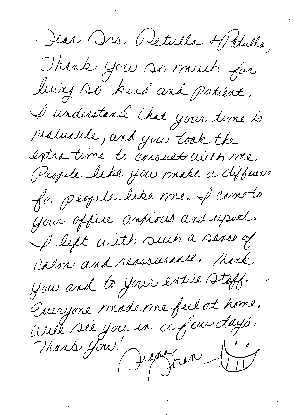 Dear Drs. Petrilla & Petrilla,
Thank you so much for
being so kind and patient.
I understand that your time is
valuable, and you took the
extra time to consult with me.
People like you make a differenc
for people like me. I came to
your office anxious and upset.
I left with such a sense of
calm and reassurance. Thank
you and to your entire staff.
Everyone made me feel at home.
Will see you in a few days.
Thank You!